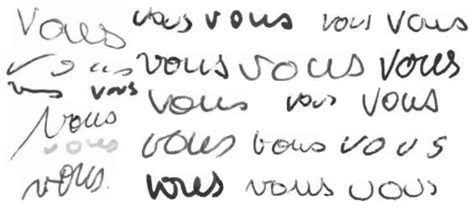 Vous vous vous vous Vous
vous vous vous vous
vous vous vous vous vous
Vous vous vous vous
vous
vous. vous vous vous